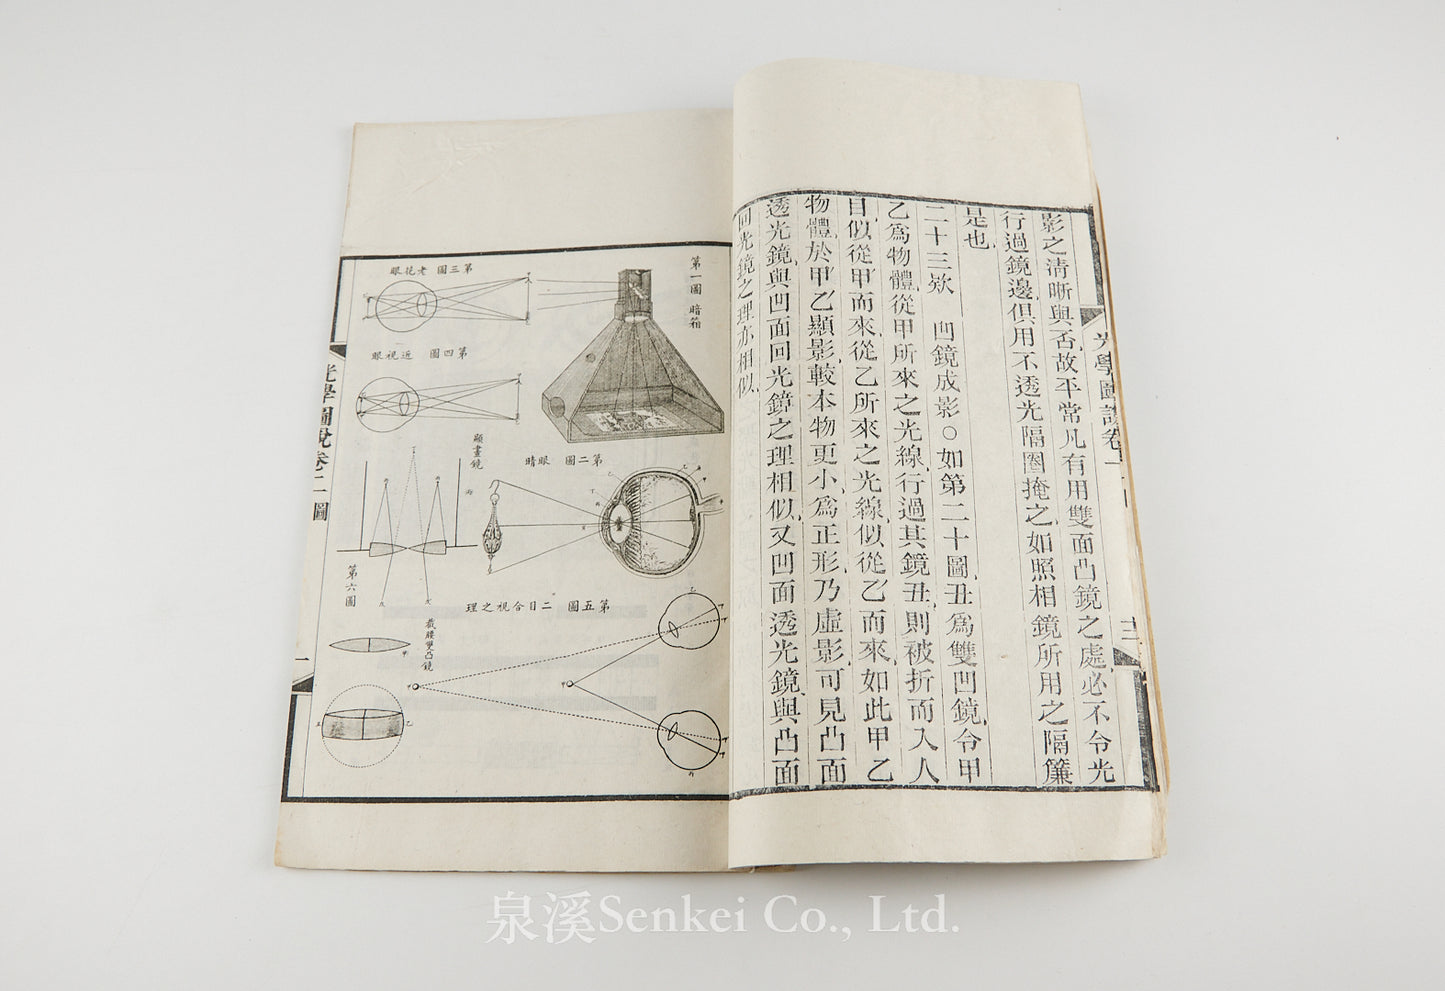 影之清晰與否故平常凡有用雙面凸鏡之處必不令光
行過鏡邊俱用不透光隔圈掩之如照相鏡所用之隔簾
是也
二十三欵 凹鏡成影○如第二十圖丑為雙凹鏡令甲
乙爲物體從甲所來之光線行過其鏡丑則被折而入人
目似從甲而來從乙所來之光線似從乙而來如此甲乙
物體於甲乙顯影較本物更小爲正形乃虛影可見凸面
透光鏡與凹面回光鏡之理相似又凹面透光鏡與凸面
回光鏡之理亦相似
光學圖說卷
第一圖 暗箱
第三圖 老花眼
第四圖 近視眼
第二圖 眼睛
顯畫鏡
第六圖
第五圖 二目合視之理
截腰雙凸鏡
光學圖說卷二圖
一
泉溪Senkei Co., Ltd.